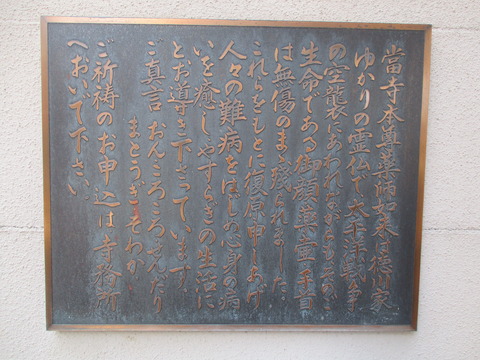 當寺本尊薬師如来は徳川家
ゆかりの霊仏で太平洋戦争
の空襲にあわれながらもその
生命である御顔薬壷手首
は無傷のまま残されました、
これらをもとに復原申しあげ
人々の難病をはじめ心身の病
いを癒しやすらぎの生活に
とお導き下さっています、
ご真言 おんころころせんだり
まとうぎそわか、
ご祈祷のお申込は寺務所
へおいで下さい